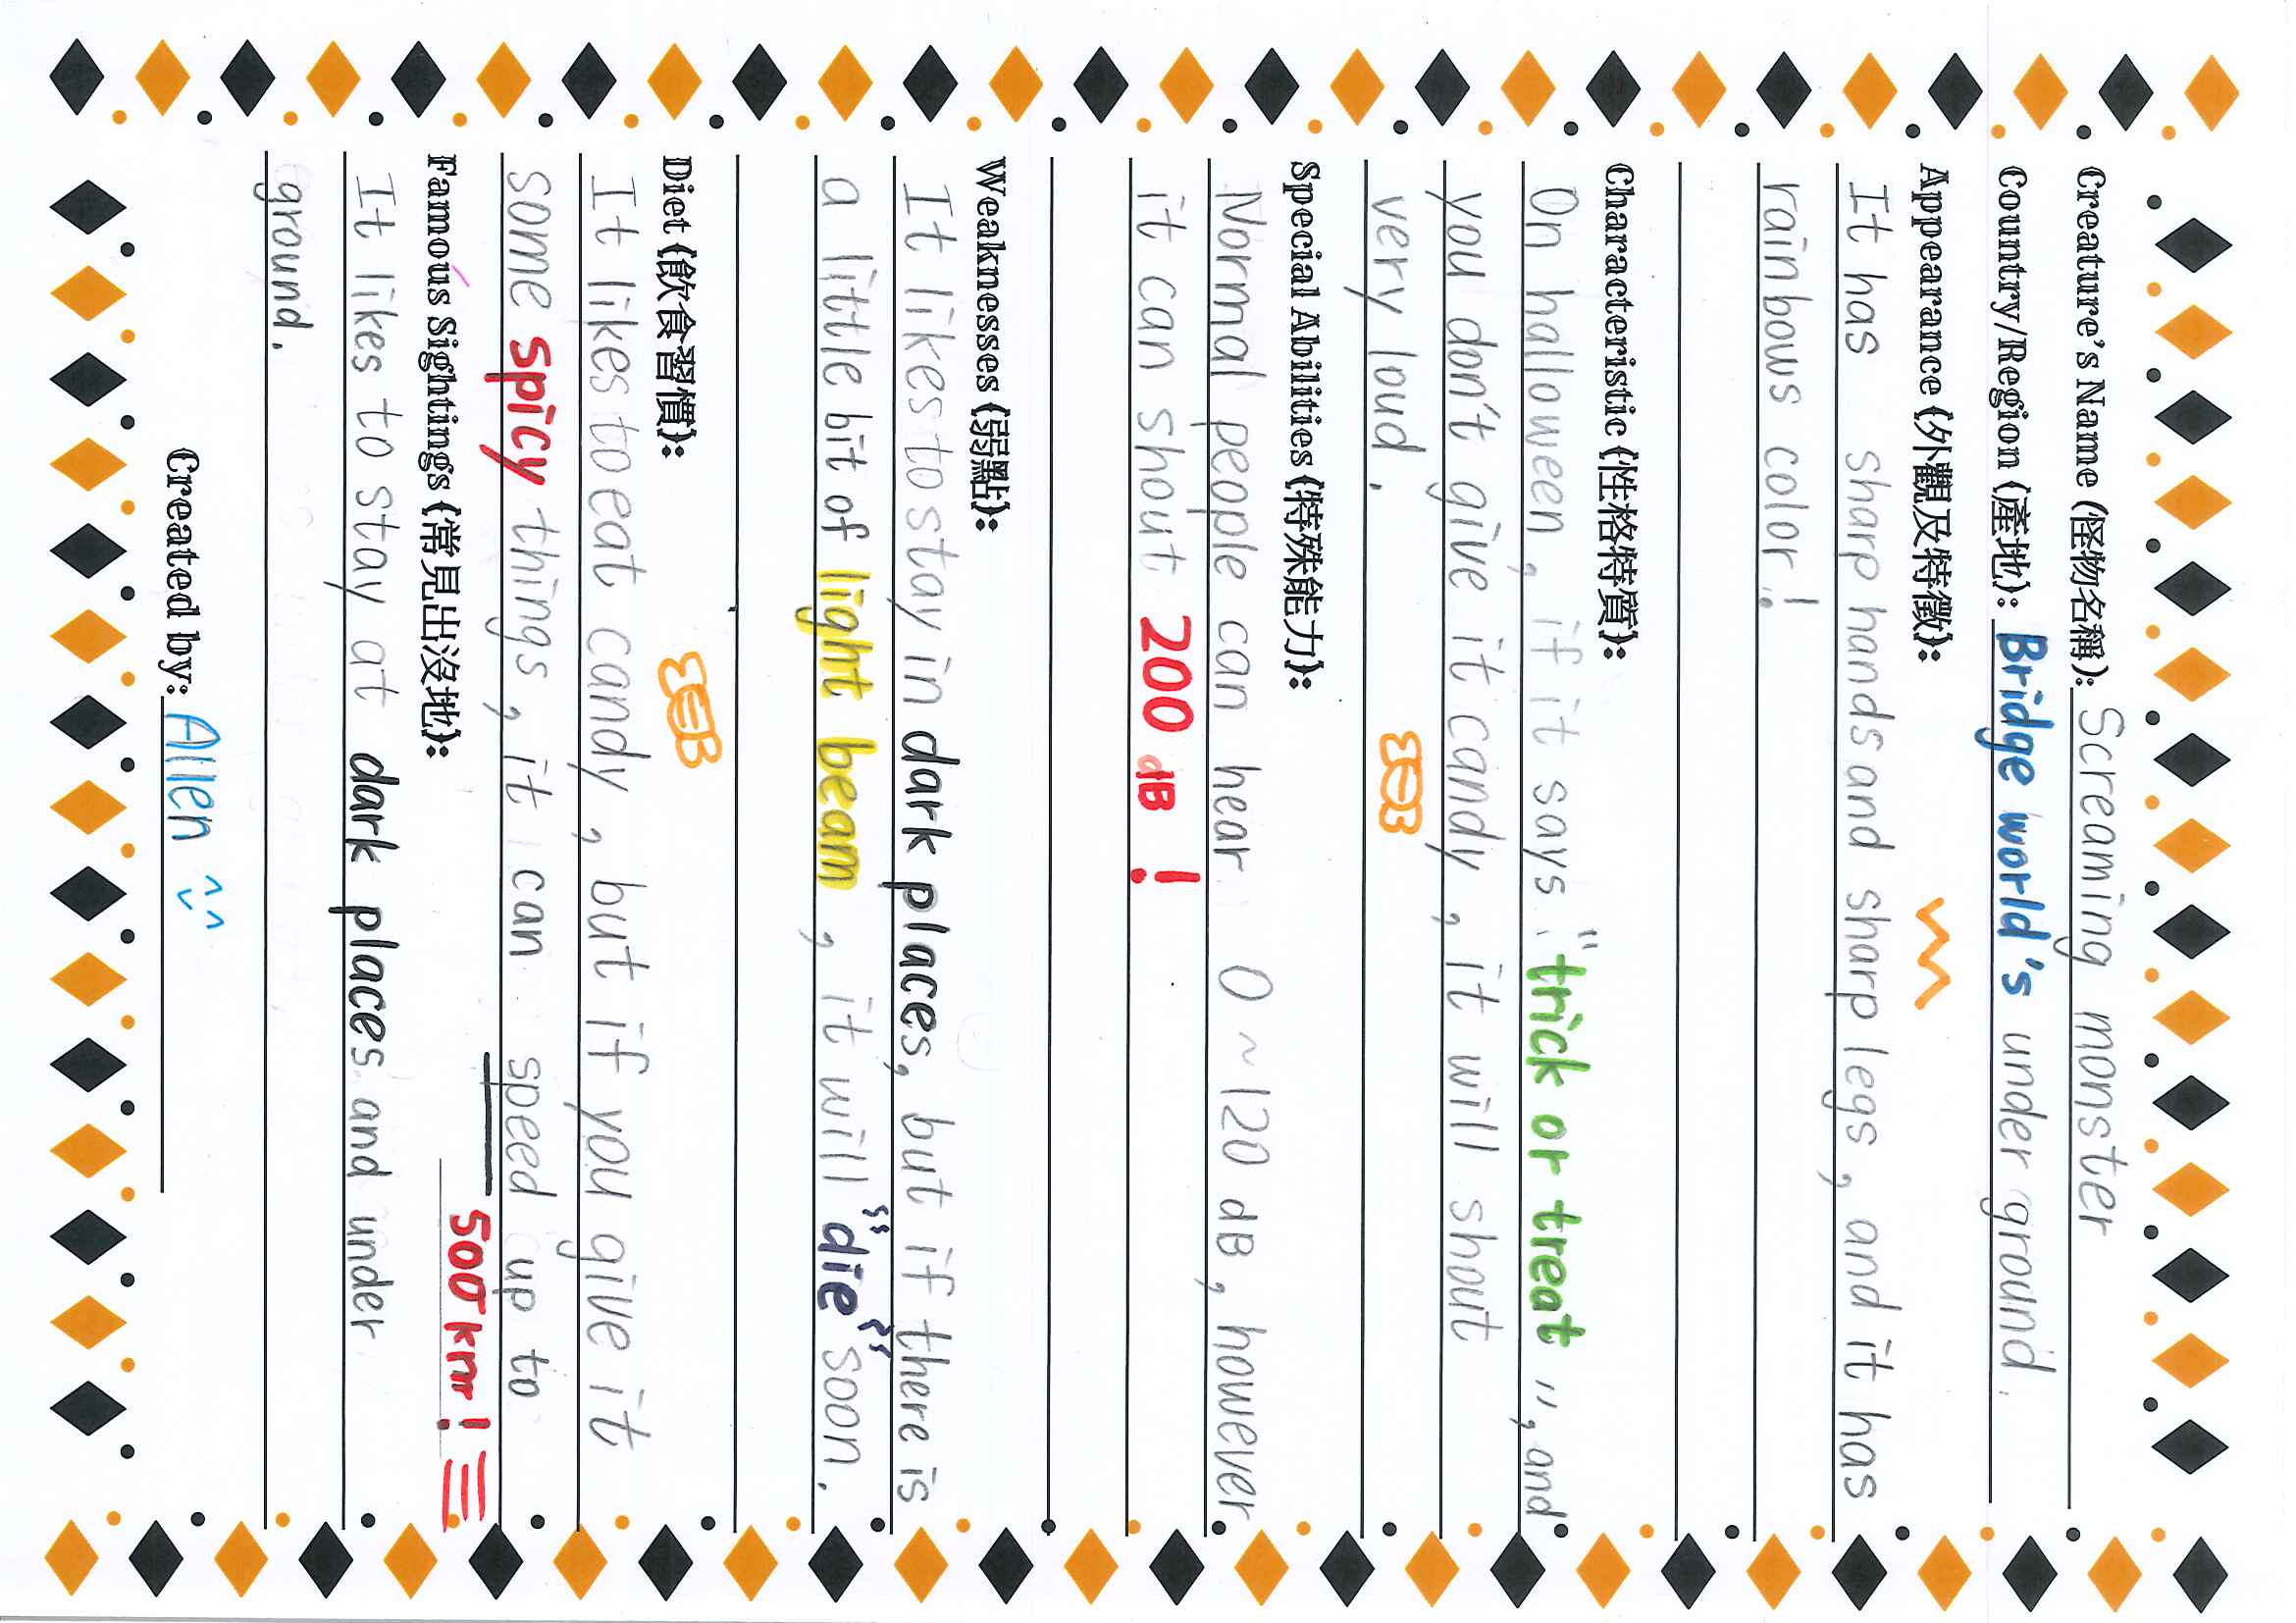 Creature's Name (怪物名稱): Screaming monster
Country/Region (產地): Bridge world's under ground.
Appearance (外觀及特徵):
It has sharp hands and sharp legs, and it has
rainbows color!
Characteristic (性格特質):
On halloween, if it says "trick or treat", and
you don't give it candy, it will shout
very loud.
Special Abilities (特殊能力):
Normal people can hear 0~120 dB, however
it can shout 200 dB !
Weaknesses (弱點):
It likes to stay in dark places, but if there is
a little bit of light beam, it will "die" soon.
Diet (飲食習慣):
It likes to eat candy, but if you give it
some spicy things, it can speed up to
500 km!
Famous Sightings (常見出沒地):
It likes to stay at dark places and under
ground.
Created by: Allen